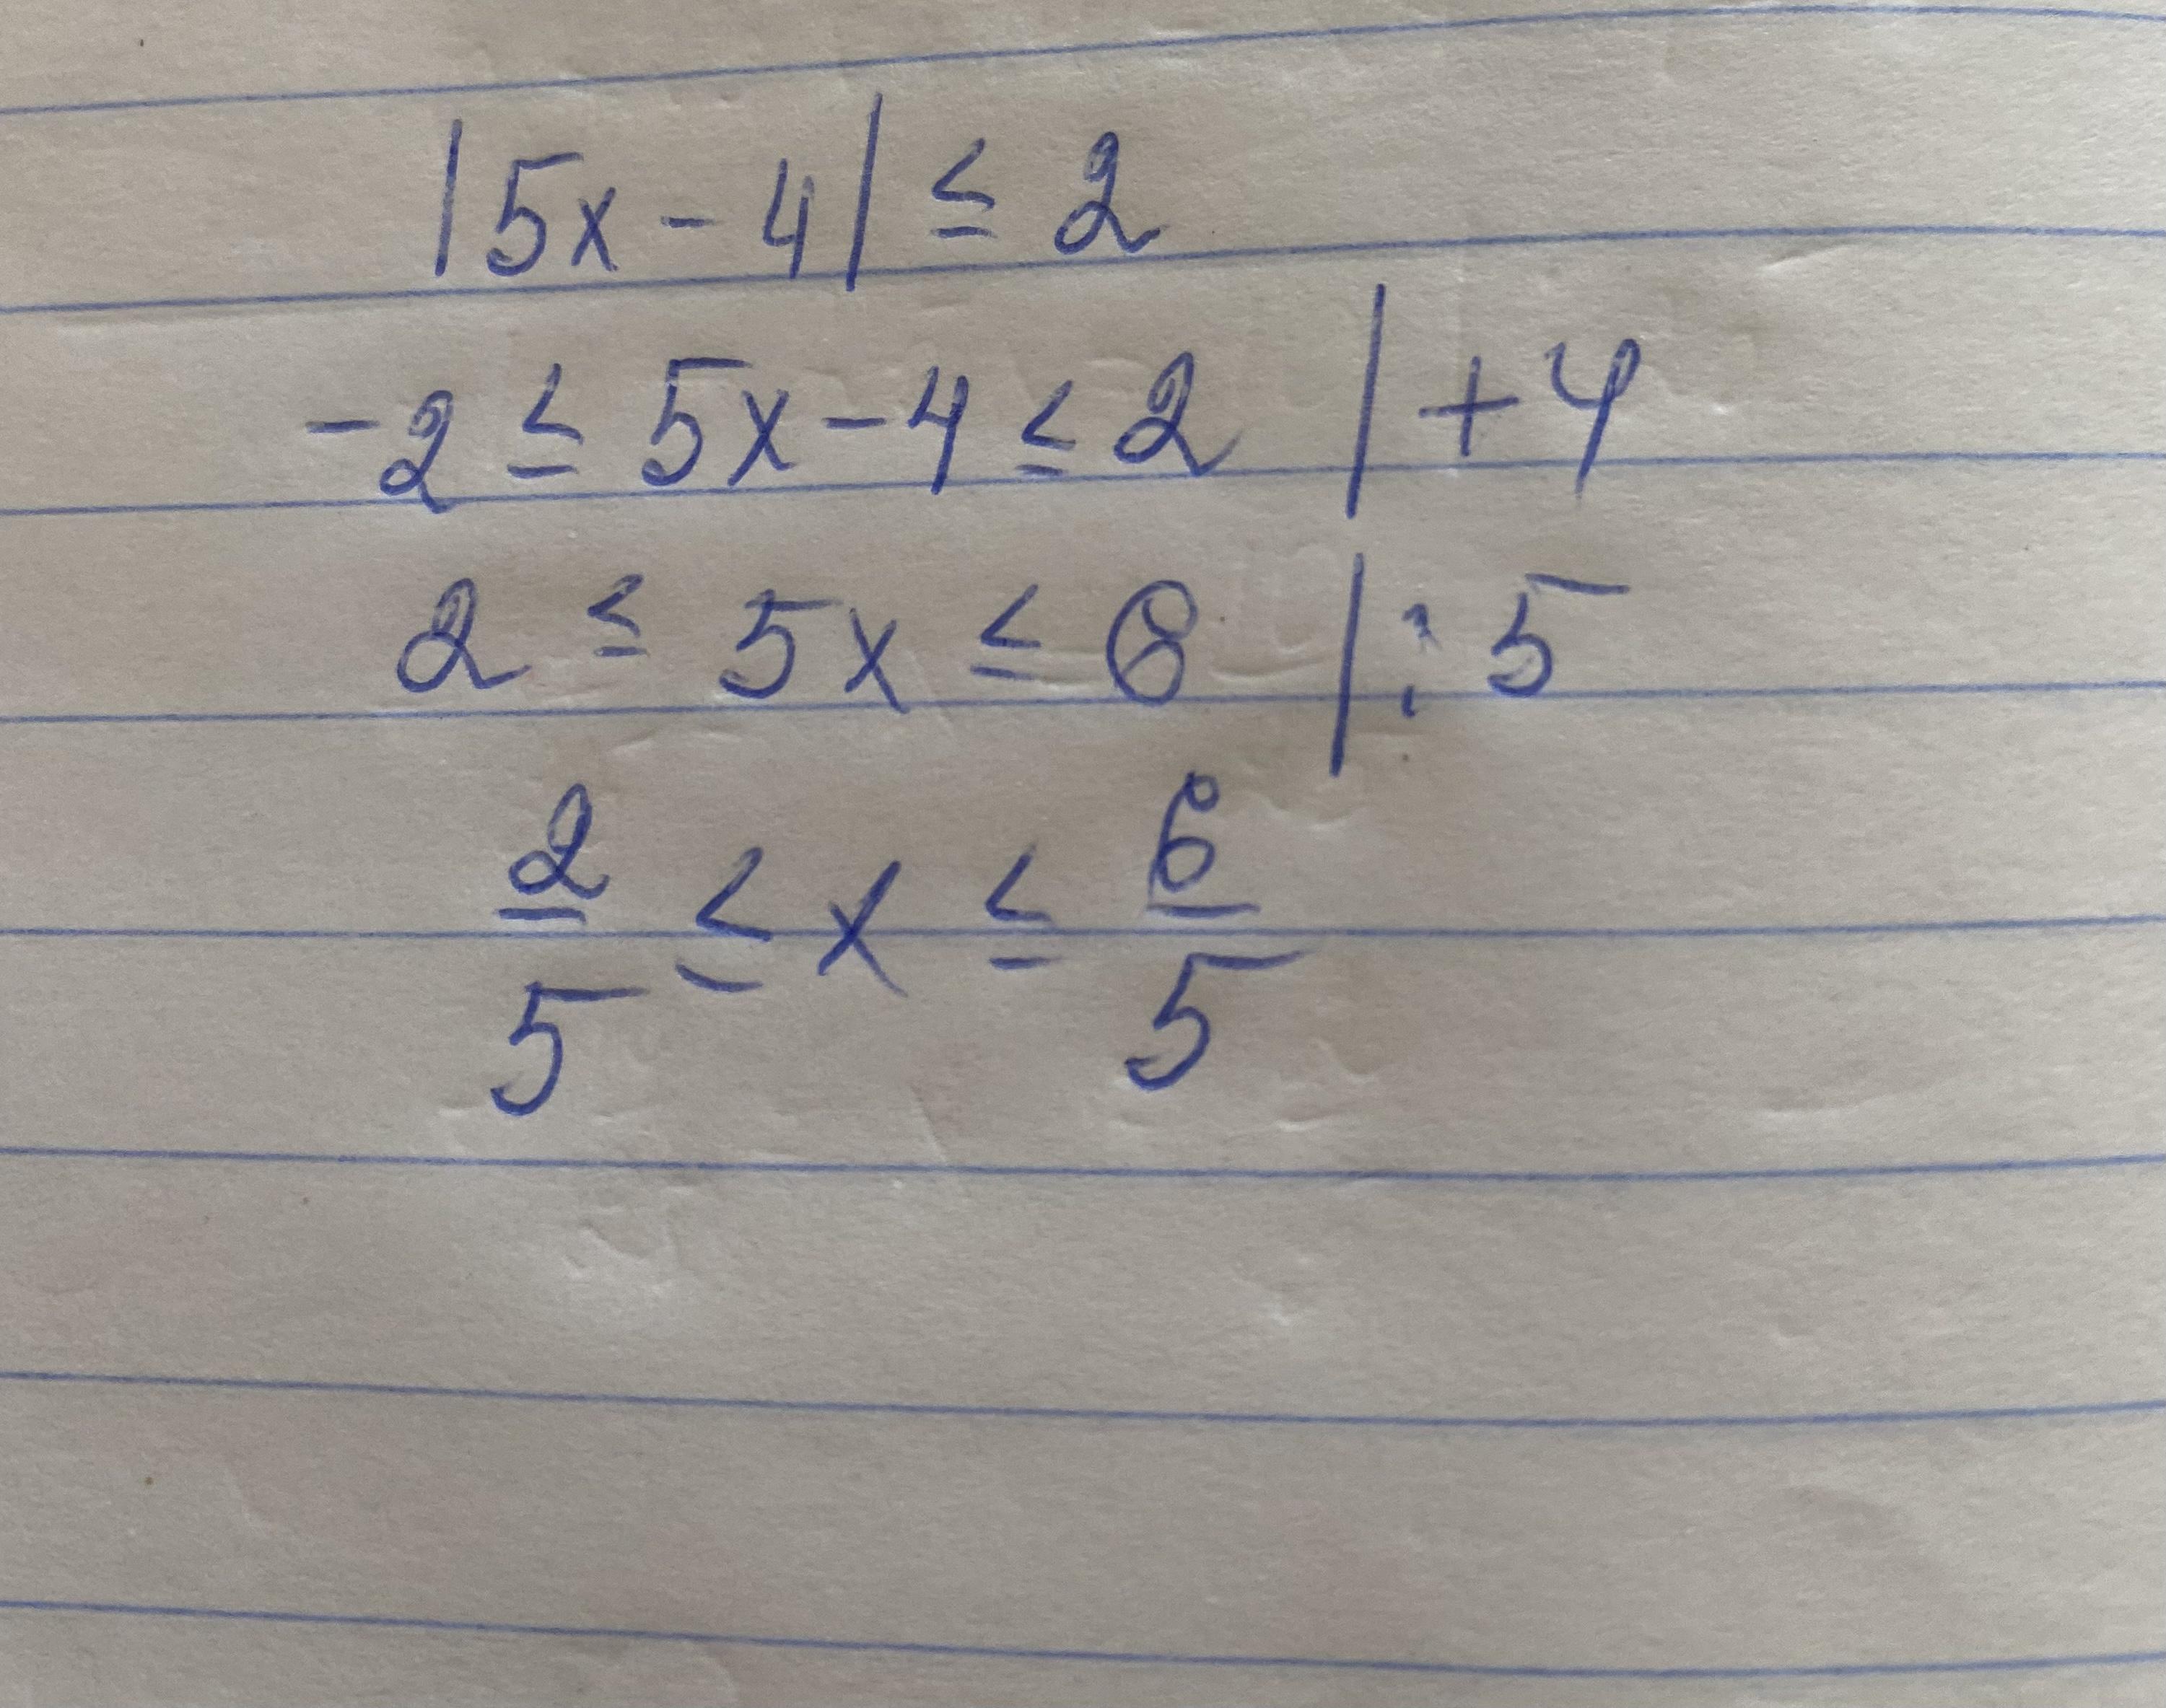 |5x - 4| ≤ 2
-2 ≤ 5x - 4 ≤ 2 | + 4
2 ≤ 5x ≤ 6 | : 5
2/5 ≤ x ≤ 6/5